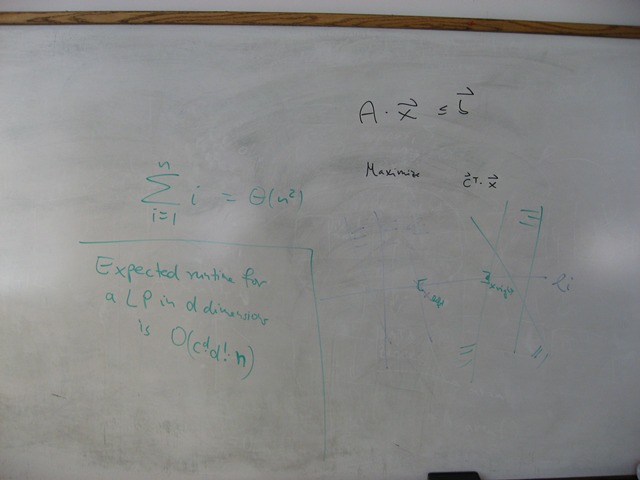 A · x⃗ ≤ b⃗
Maximize c⃗ᵀ · x⃗
n
∑ i = Θ(n²)
i=1
Expected runtime for
a LP in d dimensions
is O(c^d d! · n)
x left
x right